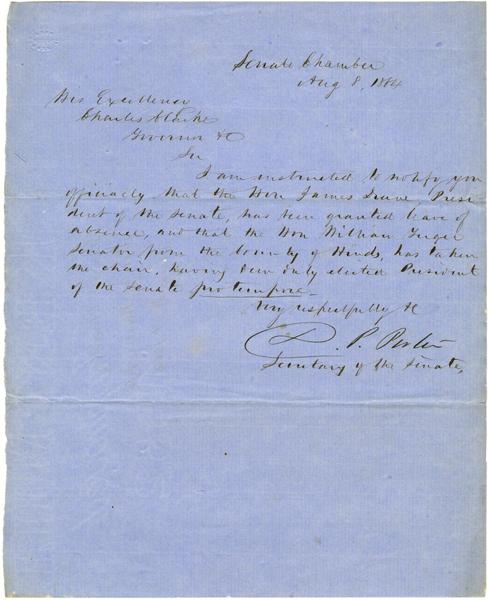 Senate Chamber
Aug 8, 1864
His Excellency
Charles Clarke
Governor &c
Sir
I am instructed to notify you
officially that the Hon James Drane, Presi
dent of the Senate, has been granted leave of
absence, and that the Hon William Yerger
Senator from the County of Hinds, has taken
the chair, having been duly elected President
of the Senate pro tempore.
Very respectfully &c
D. P. Porter
Secretary of the Senate,